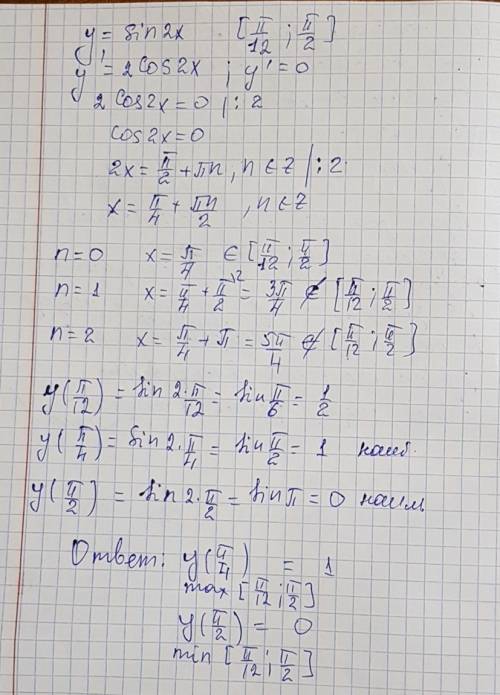 y = sin2x [π/12 ; π/2]
y' = 2cos2x ; y' = 0
2cos2x = 0 |: 2
cos2x = 0
2x = π/2 + πn, n ∈ Z |: 2
x = π/4 + πn/2 , n ∈ Z
n = 0 x = π/4 ∈ [π/12 ; π/2]
n = 1 x = π/4 + π/2 \2 = 3π/4 ∉ [π/12 ; π/2]
n = 2 x = π/4 + π = 5π/4 ∉ [π/12 ; π/2]
y(π/12) = sin 2·π/12 = sin π/6 = 1/2
y(π/4) = sin 2·π/4 = sin π/2 = 1 наиб.
y(π/2) = sin 2·π/2 = sin π = 0 наим
Ответ: y(π/4) = 1
max [π/12 ; π/2]
y(π/2) = 0
min [π/12 ; π/2]